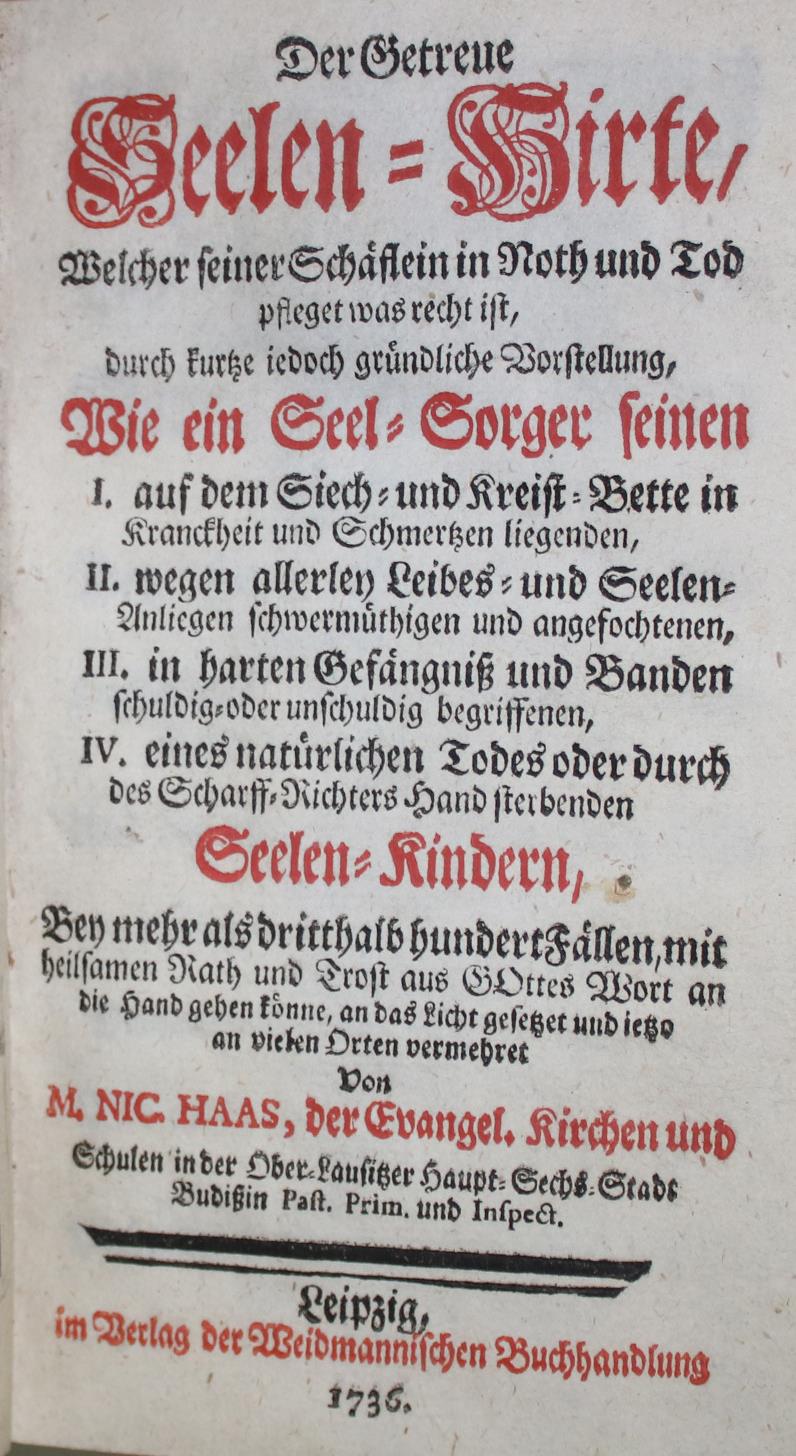 Der Getreue
Seelen-Hirte,
Welcher seiner Schäflein in Noth und Tod
pfleget was recht ist,
durch kurtze iedoch gründliche Vorstellung,
Wie ein Seel-Sorger seinen
I. auf dem Siech- und Kreist-Bette in
Kranckheit und Schmertzen liegenden,
II. wegen allerley Leibes- und Seelen-
Anliegen schwermüthigen und angefochtenen,
III. in harten Gefängniß und Banden
schuldig-oder unschuldig begriffenen,
IV. eines natürlichen Todes oder durch
des Scharff-Richters Hand sterbenden
Seelen-Kindern,
Bey mehr als dritthalb hundert Fällen, mit
heilsamen Rath und Trost aus GOttes Wort an
die Hand gehen könne, an das Licht gesetzet und ietzo
an vielen Orten vermehret
Von
M. NIC. HAAS, der Evangel. Kirchen und
Schulen in der Ober-Lausitzer Haupt-Sechs-Stadt
Budißin Past. Prim. und Inspect.
Leipzig,
im Verlag der Weidmannischen Buchhandlung
1736.